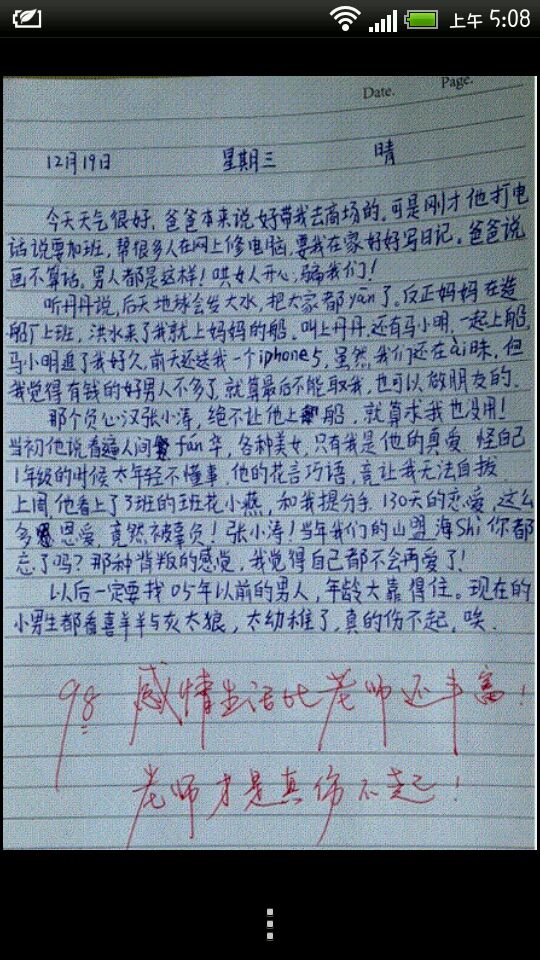 上午 5:08
Date. Page.
12月19日 星期三 晴
今天天气很好，爸爸本来说好带我去商场的，可是刚才他打电
话说要加班，帮很多人在网上修电脑，要我在家好好写日记。爸爸说
画不算话，男人都是这样！哄女人开心，骗我们！
听丹丹说，后天地球会发大水，把大家都yān了。反正妈妈在造
船厂上班，洪水来了我就上妈妈的船，叫上丹丹，还有马小明，一起上船，
马小明追了我好久，前天还送我一个iphone5，虽然我们还在ài昧，但
我觉得有钱的好男人不多了，就算最后不能取我，也可以做朋友的。
那个负心汉张小涛，绝不让他上船，就算求我也没用！
当初他说看遍人间fán华，各种美女，只有我是他的真爱，怪自己
1年级的时候太年轻不懂事，他的花言巧语，竟让我无法自拔
上周，他看上了3班的班花小燕，和我提分手，130天的恋爱，这么
多恩爱，竟然被辜负！张小涛！当年我们的山盟海Shi你都
忘了吗？那种背叛的感觉，我觉得自己都不会再爱了！
以后一定要找05年以前的男人，年龄大靠得住。现在的
小男生都看喜羊羊与灰太狼，太幼稚了，真的伤不起，唉．
98 感情生活比老师还丰富！
老师才是真伤不起！